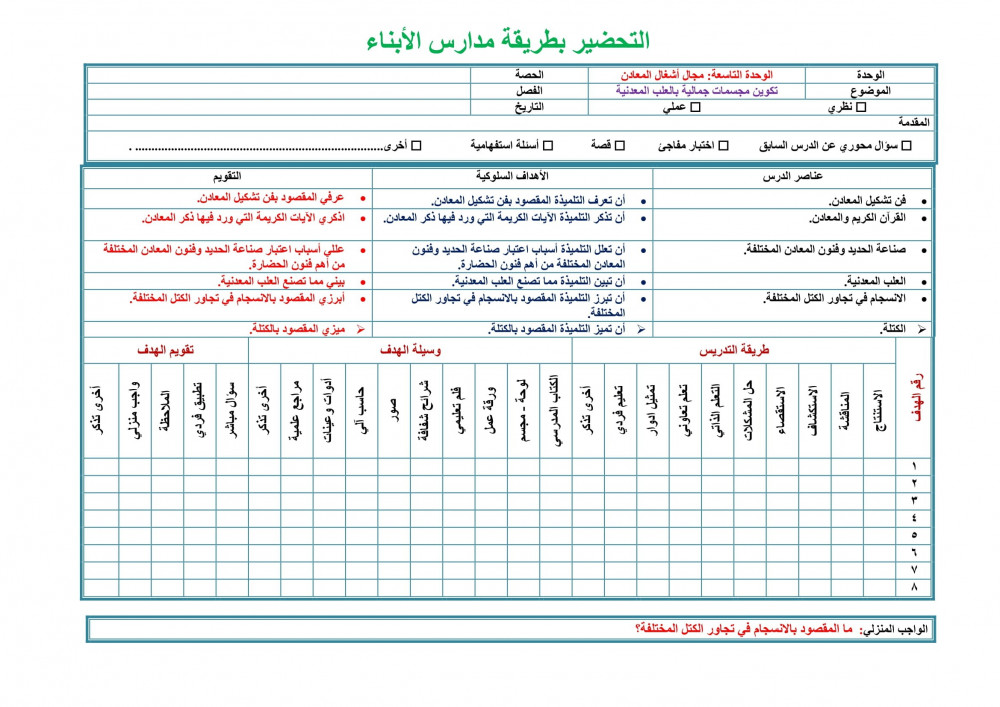 التحضير بطريقة مدارس الأبناء
الوحدة الوحدة التاسعة: مجال أشغال المعادن الحصة
الموضوع تكوين مجسمات جمالية بالعلب المعدنية الفصل
□ نظري □ عملي التاريخ
المقدمة
□ سؤال محوري عن الدرس السابق □ اختبار مفاجئ □ قصة □ أسئلة استفهامية □ أخرى............................................................................ .
عناصر الدرس الأهداف السلوكية التقويم
• فن تشكيل المعادن. • أن تعرف التلميذة المقصود بفن تشكيل المعادن. • عرفي المقصود بفن تشكيل المعادن.
• القرآن الكريم والمعادن. • أن تذكر التلميذة الآيات الكريمة التي ورد فيها ذكر المعادن. • اذكري الآيات الكريمة التي ورد فيها ذكر المعادن.
• صناعة الحديد وفنون المعادن المختلفة. • أن تعلل التلميذة أسباب اعتبار صناعة الحديد وفنون • عللي أسباب اعتبار صناعة الحديد وفنون المعادن المختلفة
المعادن المختلفة من أهم فنون الحضارة. من أهم فنون الحضارة.
• العلب المعدنية. • أن تبين التلميذة مما تصنع العلب المعدنية. • بيني مما تصنع العلب المعدنية.
• الانسجام في تجاور الكتل المختلفة. • أن تبرز التلميذة المقصود بالانسجام في تجاور الكتل • أبرزي المقصود بالانسجام في تجاور الكتل المختلفة.
المختلفة.
➢ الكتلة. ➢ أن تميز التلميذة المقصود بالكتلة. ➢ ميزي المقصود بالكتلة.
رقم الهدف طريقة التدريس وسيلة الهدف تقويم الهدف
الاستنتاج
المناقشة
الاستكشاف
الاستقصاء
حل المشكلات
التعلم الذاتي
تعلم تعاوني
تمثيل ادوار
تعليم فردي
أخرى تذكر
الكتاب المدرسي
لوحة - مجسم
ورقة عمل
فلم تعليمي
شرائح شفافة
صور
حاسب آلي
أدوات وعينات
مراجع علمية
أخرى تذكر
سؤال مباشر
تطبيق فردي
الملاحظة
واجب منزلي
أخرى تذكر
١
٢
٣
٤
٥
٦
٧
٨
الواجب المنزلي: ما المقصود بالانسجام في تجاور الكتل المختلفة؟